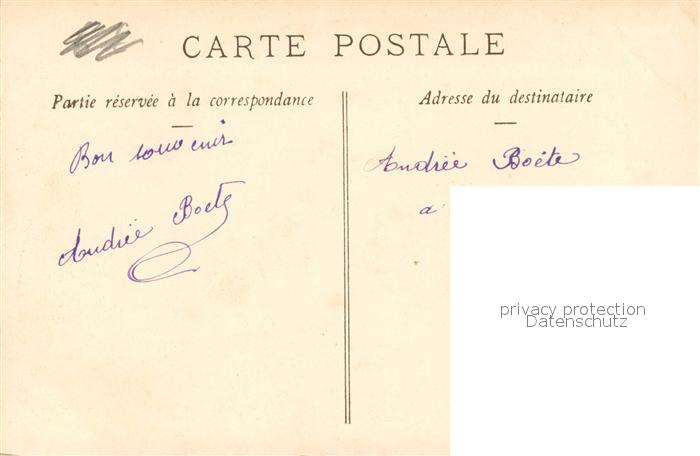 CARTE POSTALE
Partie réservée à la correspondance
Bon souvenir
Andrée Boete
Adresse du destinataire
Andrée Boéte
a
privacy protection
Datenschutz